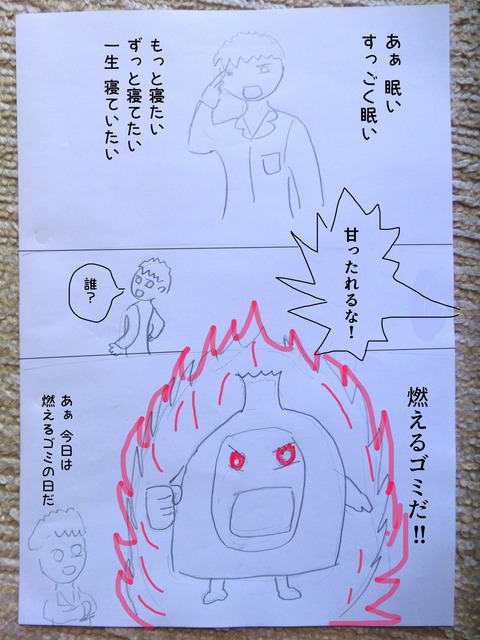 あぁ 眠い
すっごく眠い
もっと寝たい
ずっと寝てたい
一生 寝ていたい
甘ったれるな!
誰?
燃えるゴミだ!!
あぁ 今日は
燃えるゴミの日だ